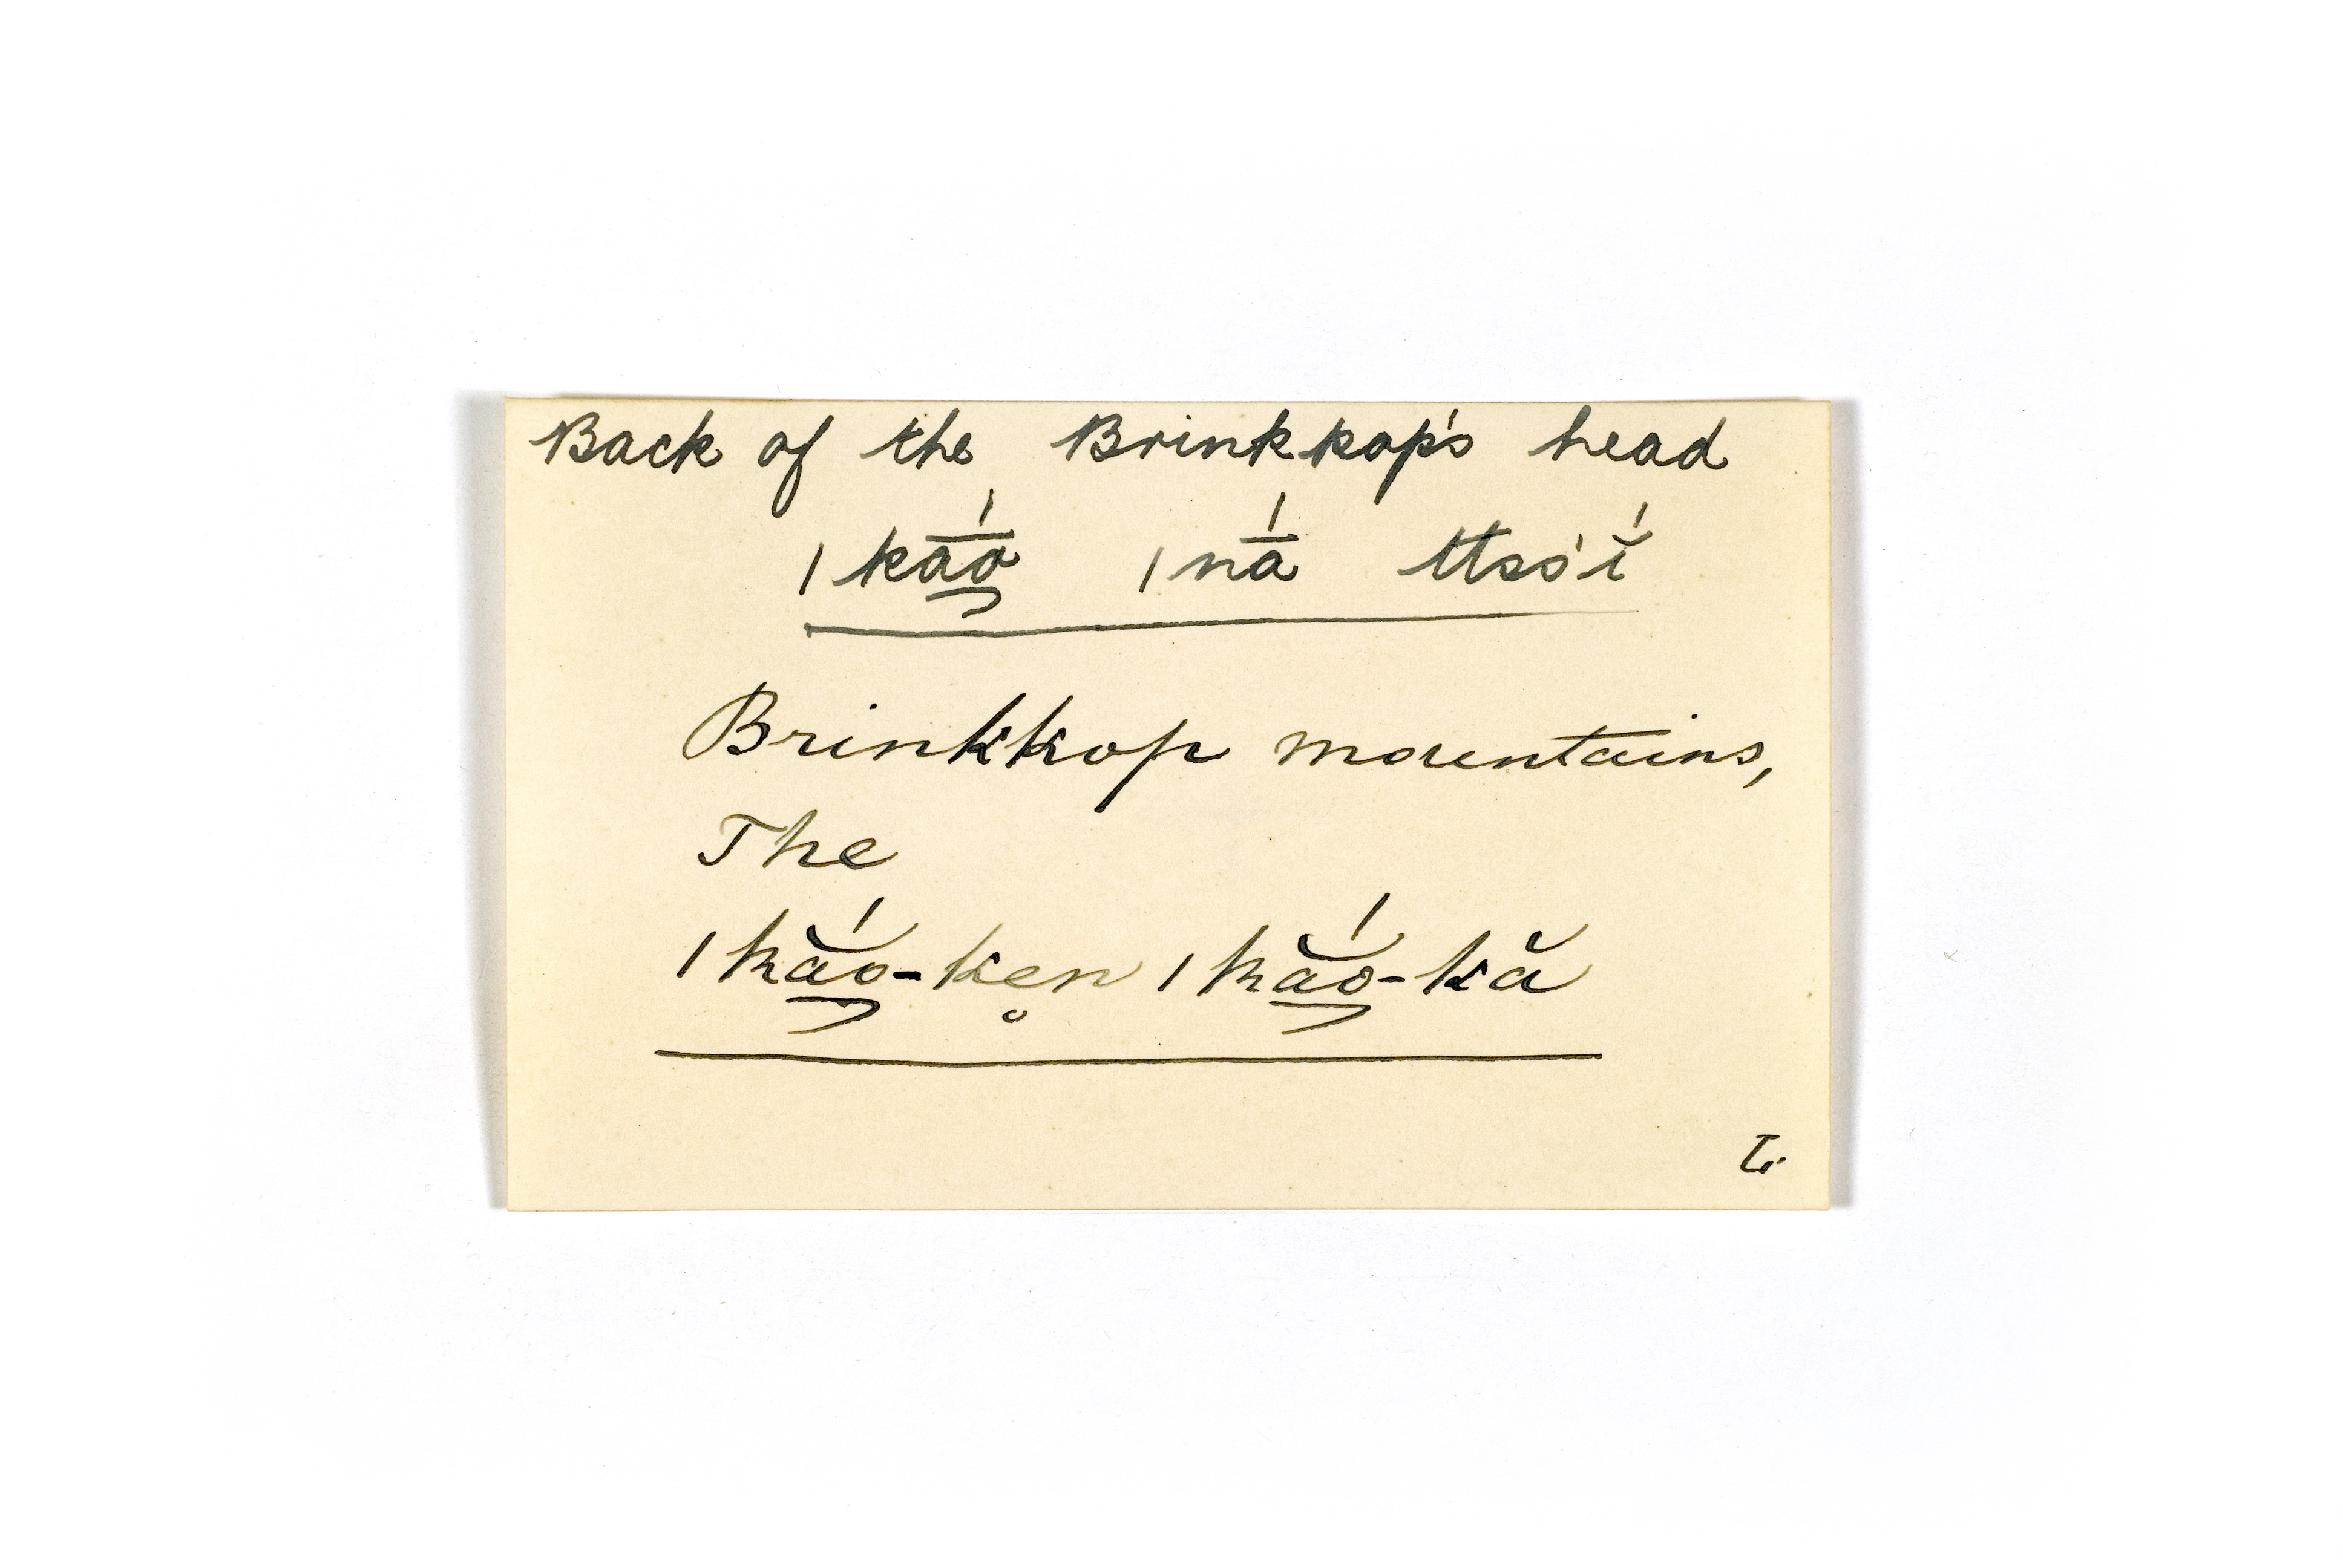 Back of the Brinkkop's head
ǀkā́o̯ ǀnā́ ttss'ĭ́
Brinkkop mountains,
The
ǀkắo̯-ken̥ ǀkắo̯-kă
L.